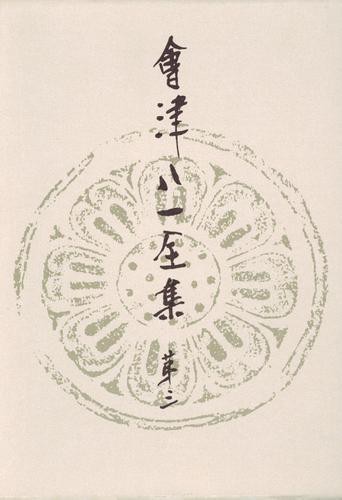 會津八一全集 第三